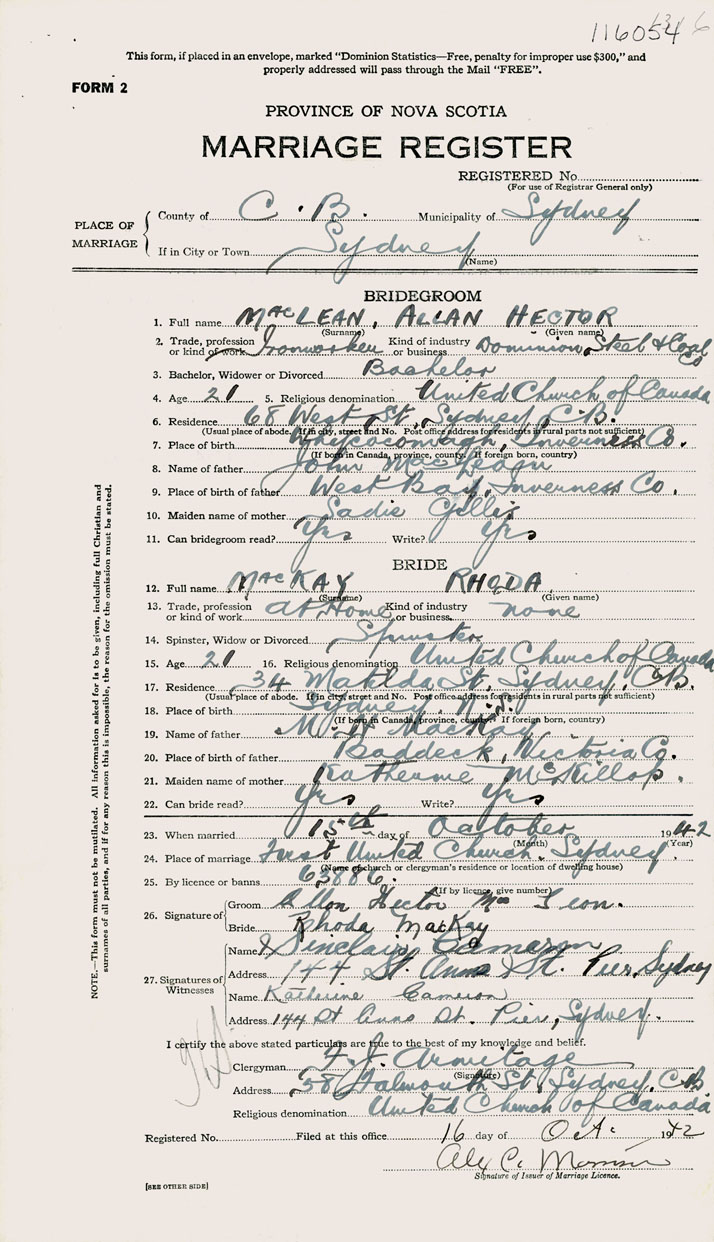 116054
This form, if placed in an envelope, marked "Dominion Statistics—Free, penalty for improper use $300," and
properly addressed will pass through the Mail "FREE".
FORM 2
PROVINCE OF NOVA SCOTIA
MARRIAGE REGISTER
REGISTERED No.
(For use of Registrar General only)
PLACE OF MARRIAGE
County of C. B. Municipality of Sydney
If in City or Town Sydney
(Name)
BRIDEGROOM
1. Full name MacLEAN, ALLAN HECTOR
(Surname) (Given name)
2. Trade, profession or kind of work Ironworker Kind of industry or business Dominion Steel & Coal Co
3. Bachelor, Widower or Divorced Bachelor
4. Age 21 5. Religious denomination United Church of Canada
6. Residence 68 West St., Sydney, C.B.
(Usual place of abode. If in city, street and No. Post office address for residents in rural parts not sufficient)
7. Place of birth Whycocomagh, Inverness Co.
(If born in Canada, province, county. If foreign born, country)
8. Name of father John MacLean
9. Place of birth of father West Bay, Inverness Co.
10. Maiden name of mother Sadie Gillis
11. Can bridegroom read? Yes Write? Yes
BRIDE
12. Full name MacKAY RHODA
(Surname) (Given name)
13. Trade, profession or kind of work at Home Kind of industry or business none
14. Spinster, Widow or Divorced Spinster
15. Age 21 16. Religious denomination United Church of Canada
17. Residence 34 Matilda St., Sydney, C.B.
(Usual place of abode. If in city, street and No. Post office address for residents in rural parts not sufficient)
18. Place of birth Sydney, N.S.
(If born in Canada, province, county. If foreign born, country)
19. Name of father MacKay
20. Place of birth of father Baddeck, Victoria Co.
21. Maiden name of mother Katherine McKillop.
22. Can bride read? Yes Write? Yes
23. When married 15th day of October 1942
(Month) (Year)
24. Place of marriage First United Church, Sydney.
(Name of church or clergyman's residence or location of dwelling house)
25. By licence or banns 63886.
(If by licence, give number)
26. Signature of
Groom Allan Hector Mac Lean.
Bride Rhoda MacKay
27. Signatures of Witnesses
Name Sinclair Cameron
Address 144 St. Anns St. Pier, Sydney
Name Katherine Cameron
Address 144 St Anns St. Pier, Sydney.
I certify the above stated particulars are true to the best of my knowledge and belief.
Clergyman F. J. Armitage
(Signature)
Address 58 Falmouth St., Sydney, C.B
Religious denomination United Church of Canada
Registered No. Filed at this office 16 day of Oct. 1942
Alex C.
Signature of Issuer of Marriage Licence.
[SEE OTHER SIDE]
NOTE.—This form must not be mutilated. All information asked for is to be given, including full Christian and
surnames of all parties, and if for any reason this is impossible, the reason for the omission must be stated.